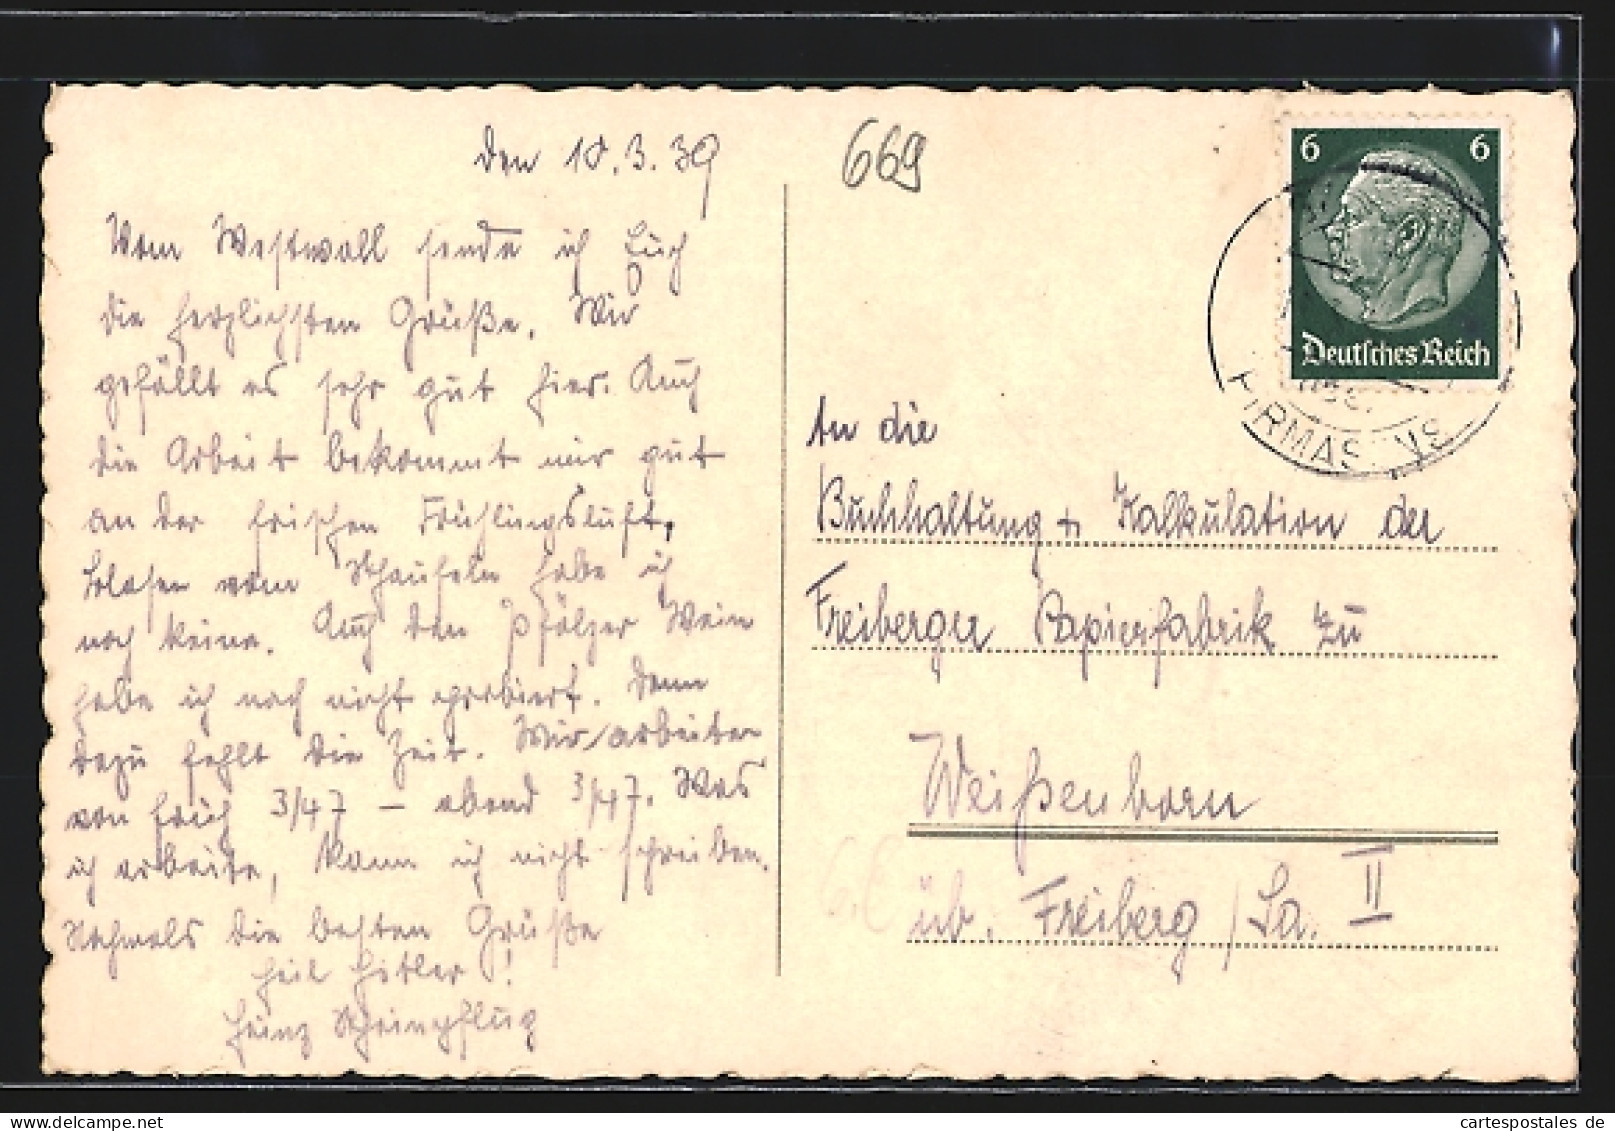 den 18.3.39
Vom Westwall sende ich Euch
die herzlichsten Grüße. Mir
gefällt es sehr gut hier. Auch
die Arbeit bekommt mir gut
an der frischen Frühlingsluft.
Blasen vom Schaufeln habe ich
noch keine. Auch den Pfälzer Wein
habe ich noch nicht probiert. Denn
dazu fehlt die Zeit. Wir arbeiten
von früh 3/47 – abend 3/47. Was
ich arbeite, kann ich nicht schreiben.
Nochmals die besten Grüße
Heil Hitler!
Heinz Scheinpflug
669
6 6
Deutsches Reich
PIRMASENS
An die
Buchhaltung + Kalkulation der
Freiberger Papierfabrik zu
Weißenborn
üb. Freiberg / Sa. II
cartespostales de